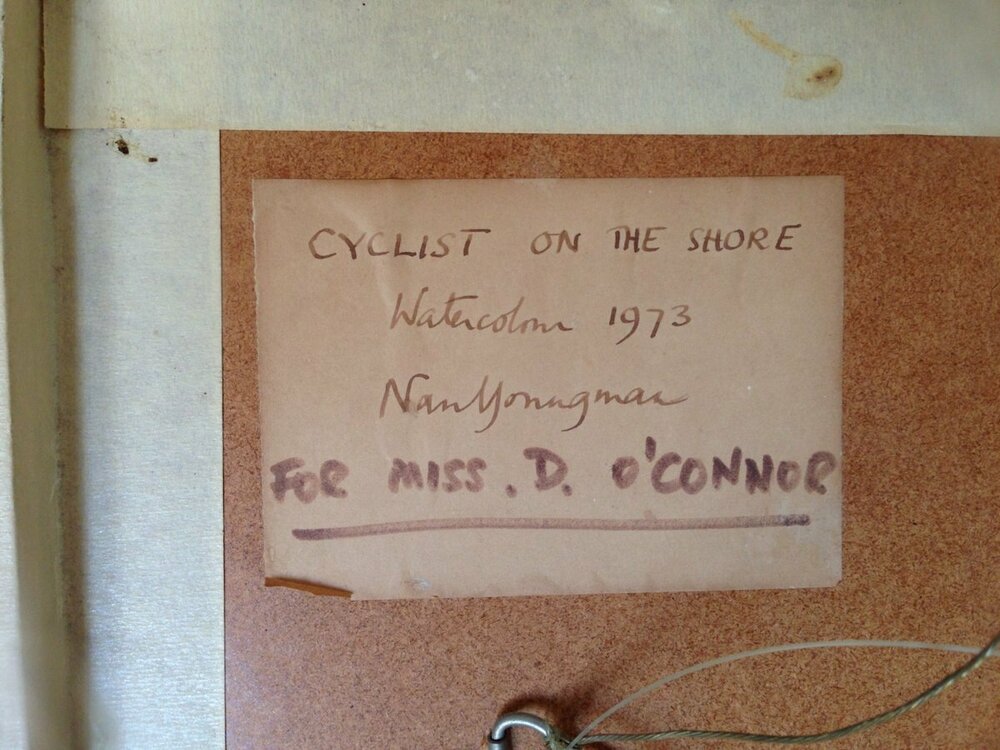 CYCLIST ON THE SHORE
Watercolour 1973
Nan Youngman
FOR MISS. D. O'CONNOR